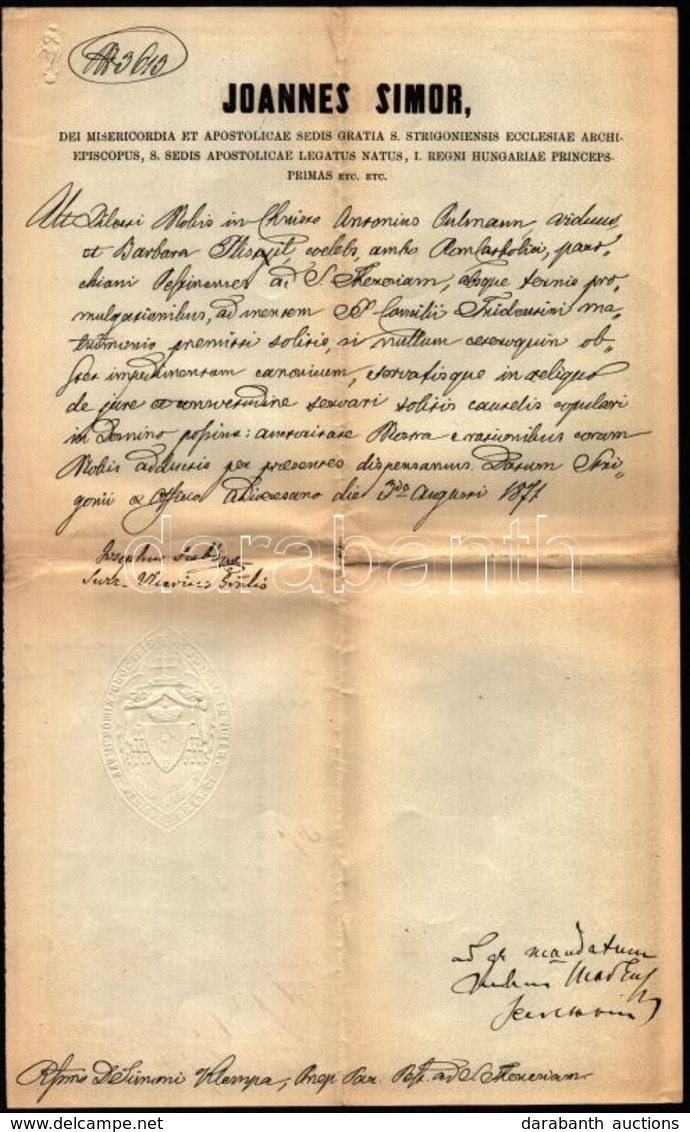 № 3613
JOANNES SIMOR,
DEI MISERICORDIA ET APOSTOLICAE SEDIS GRATIA S. STRIGONIENSIS ECCLESIAE ARCHI-
EPISCOPUS, S. SEDIS APOSTOLICAE LEGATUS NATUS, I. REGNI HUNGARIAE PRINCEPS-
PRIMAS ETC. ETC.
Ut Dilecti Nobis in Christo Antonius Pulmann, viduus,
et Barbara coelebs, ambo Rom. Catholici, paro-
chiani Pestinenses ad S. Theresiam, absque ternis pro-
mulgationibus, ad mentem S. Concilii Tridentini ma-
trimonio praemitti solitis, si nullum ceteroquin ob-
stet impedimentum canonicum, servatisque in reliquo
de jure et consuetudine servari solitis cautelis copulari
in Domino possint: auctoritate Nostra e rationibus coram
Nobis adductis per praesentes dispensamus. Datum Stri-
gonii ex Officio Adioecesano die 3tia Augusti 1871
Josephus
Surr. Vicarius Grālis
darabanth
ad gr mandatum
Secretarius
Rssmo D. Simoni Klempa, Praep. Par. Pest. ad S. Theresiam.
darabanth auctions